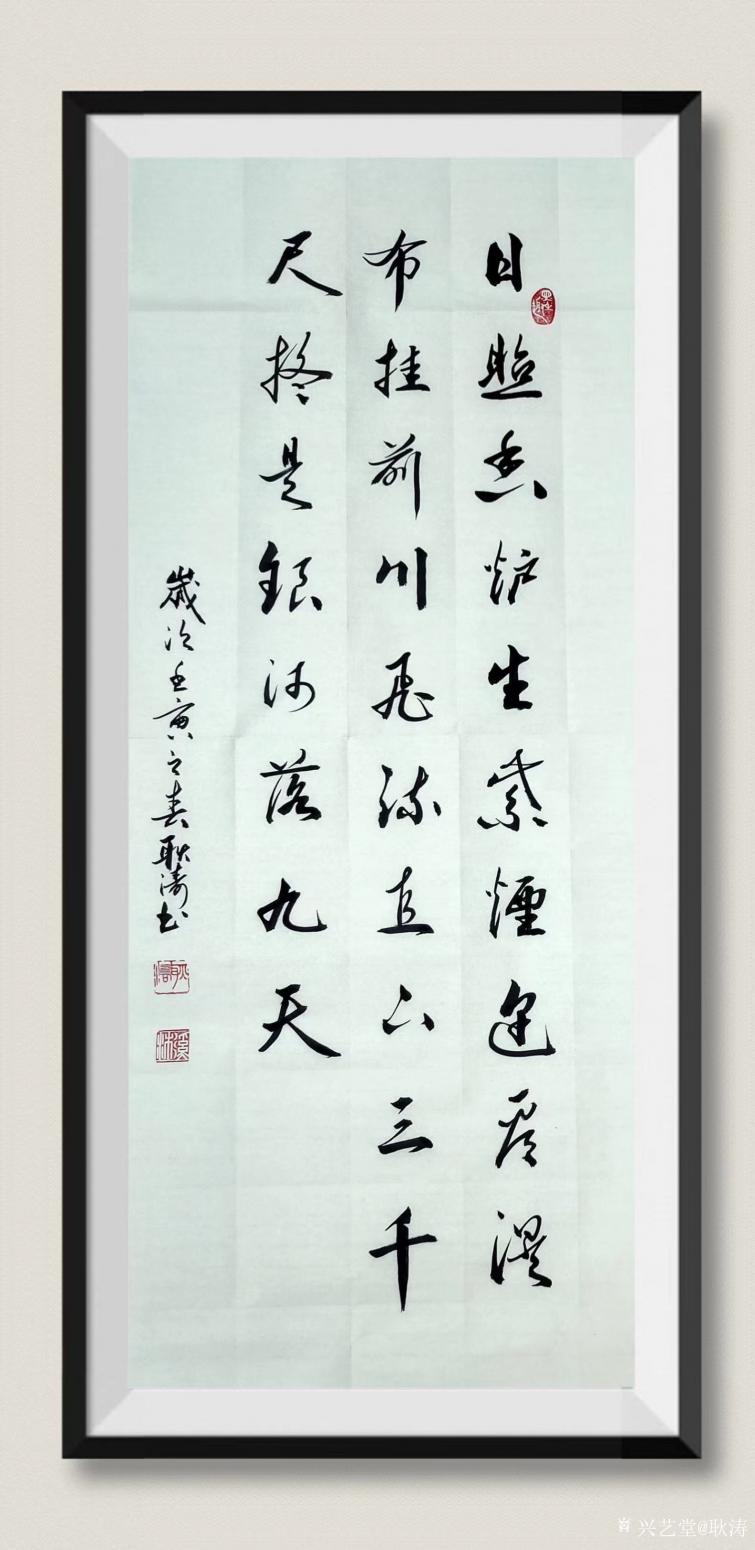 日照香炉生紫煙遥看瀑
布挂前川飛流直下三千
尺疑是銀河落九天
歲次壬寅之春耿濤书
兴艺堂@耿涛